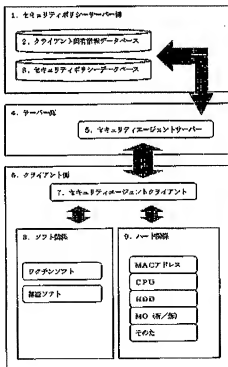 1. セキュリティポリシーサーバー側
2. クライアント固有情報データベース
3. セキュリティポリシーデータベース
4. サーバー側
5. セキュリティエージェントサーバー
6. クライアント側
7. セキュリティエージェントクライアント
8. ソフト関係
ワクチンソフト
9. ハード関係
MACアドレス
CPU
HDD
MO
そのた